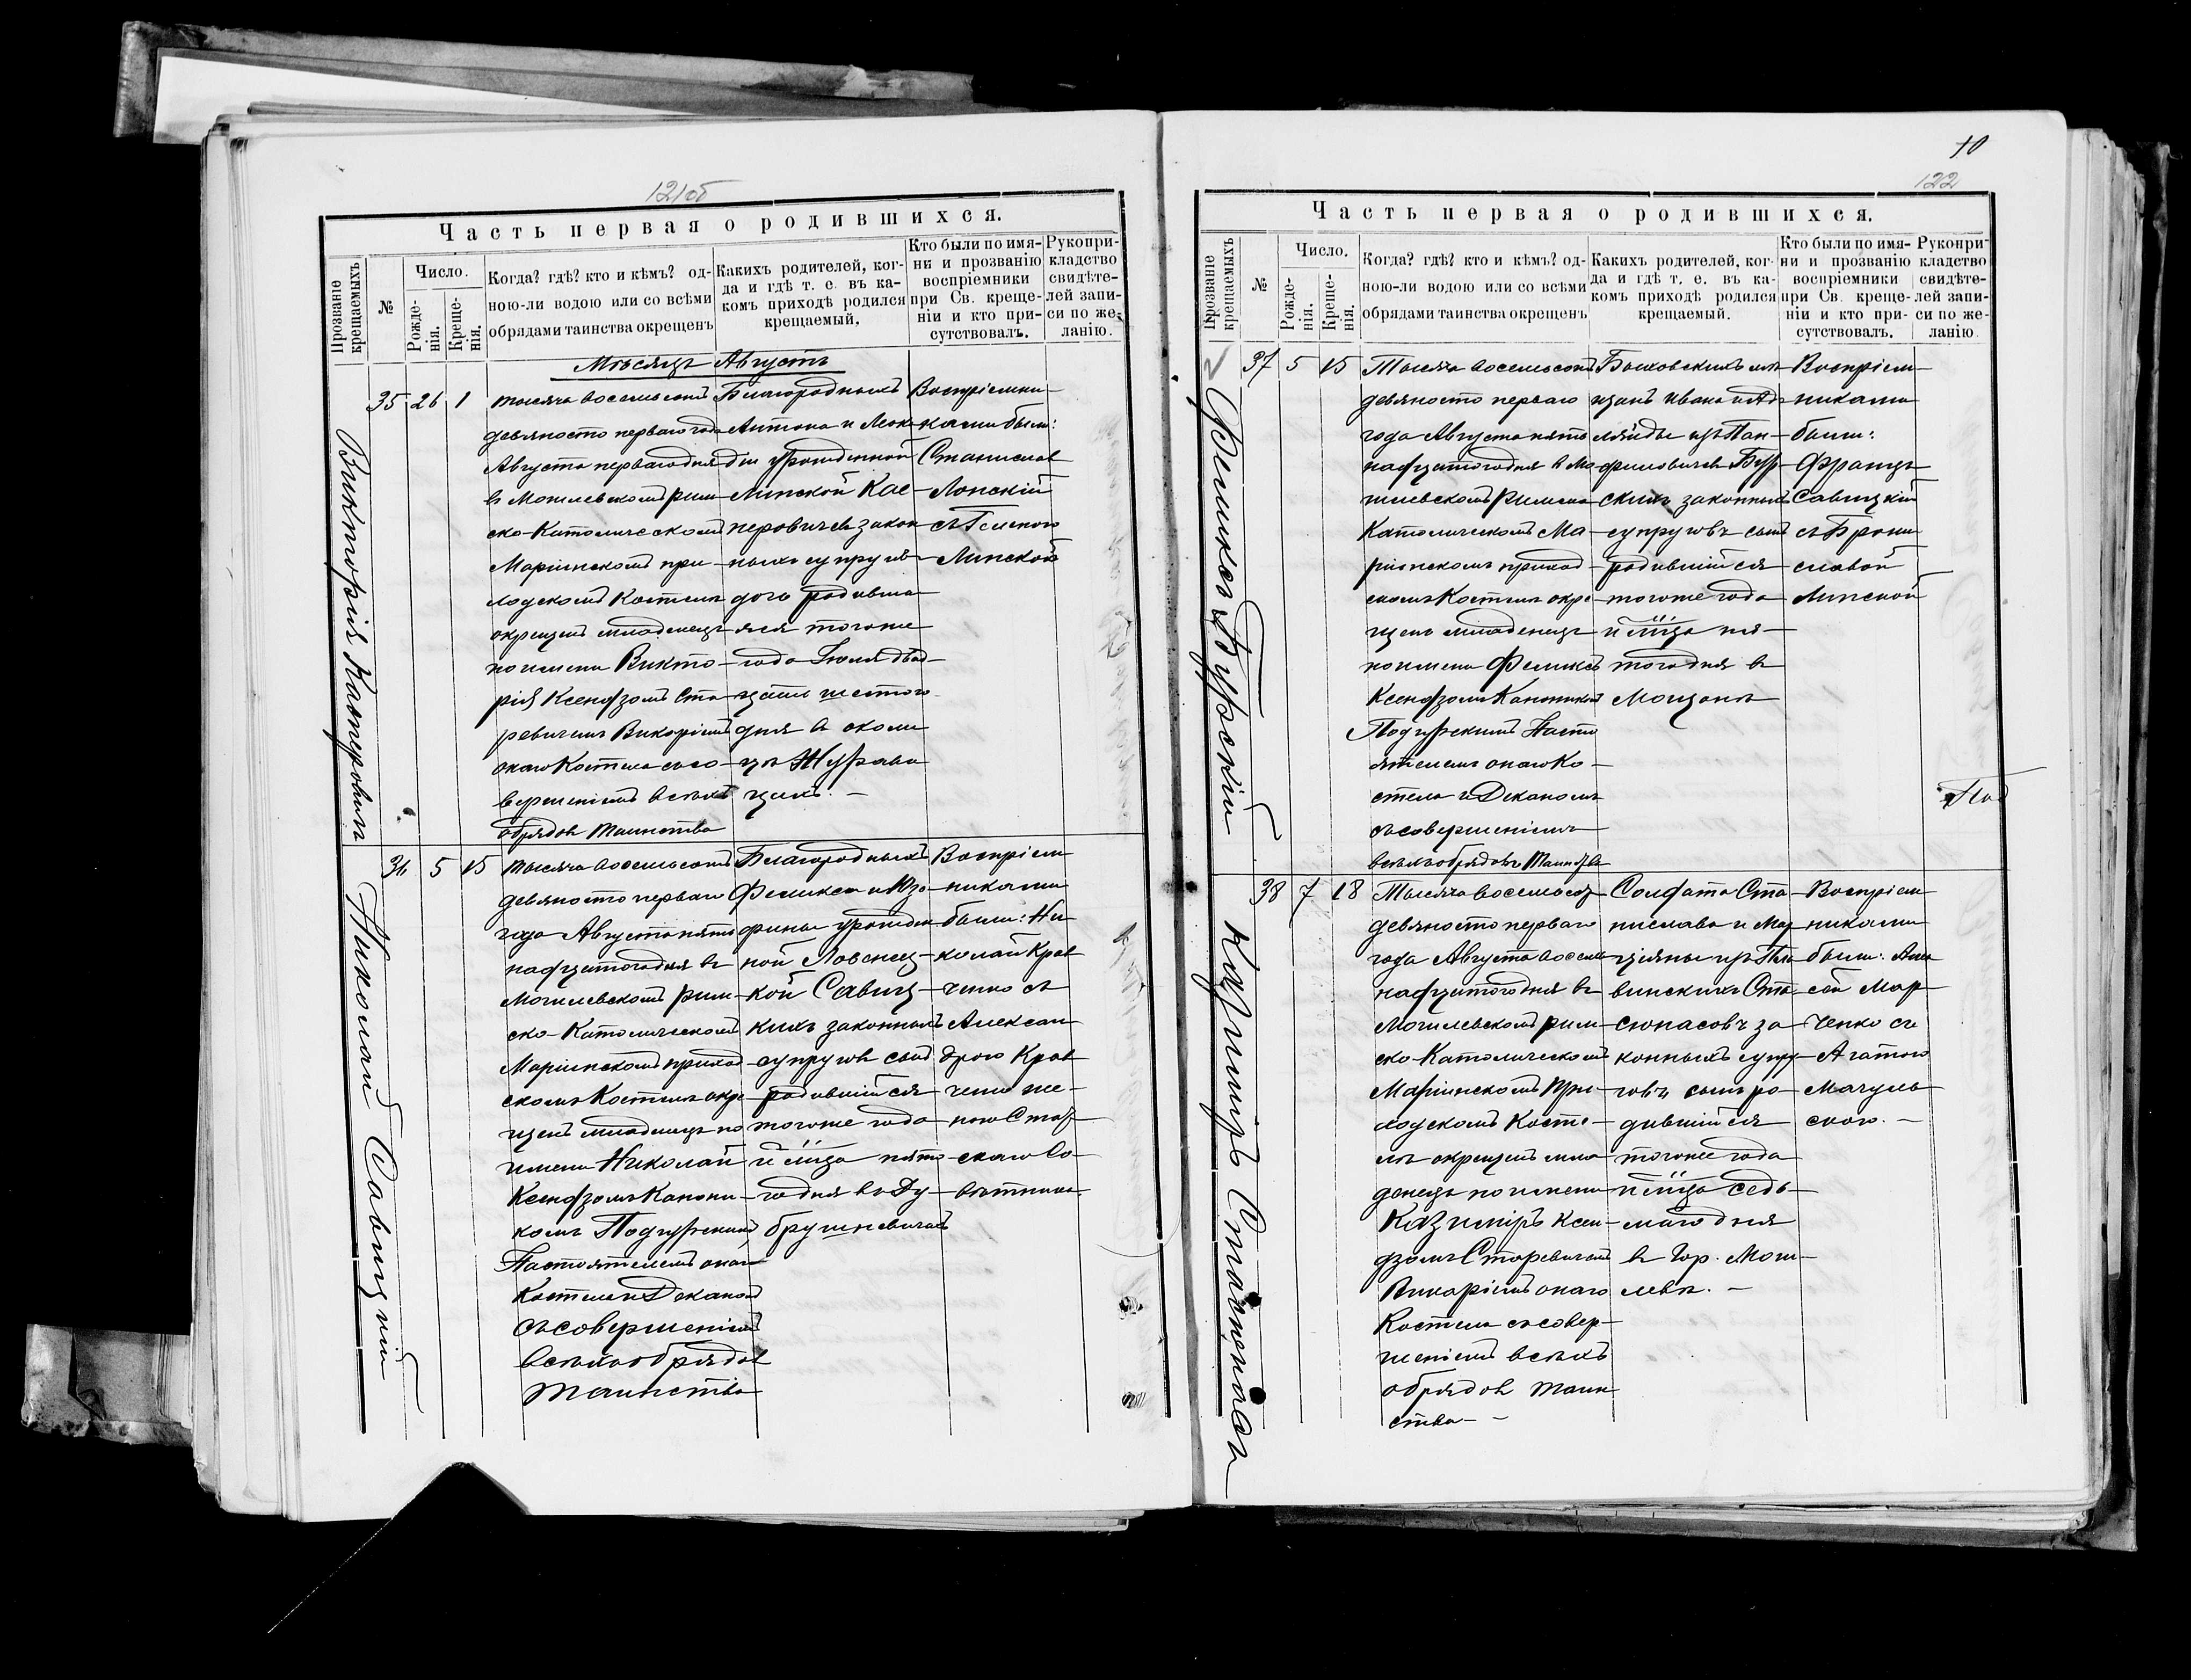 121об
Часть первая о родившихся.
Прозваніе крещаемыхъ
№
Число.
Рожденія.
Крещенія.
Когда? гдѣ? кто и кѣмъ? од-
ною-ли водою или со всѣми
обрядами таинства окрещенъ
Какихъ родителей, ког-
да и гдѣ т. е. въ ка-
комъ приходѣ родился
крещаемый.
Кто были по имя-
ни и прозванію
воспріемники
при Св. креще-
ніи и кто при-
сутствовалъ.
Рукопри-
кладство
свидѣте-
лей запи-
си по же-
ланію.
Мѣсяцъ Августъ
Викторія Касперовичъ
35 26 1
тысяча восемьсотъ
девяносто перваго года
Августа перваго дня
въ Могилевскомъ рим
ско-Католическомъ
Маріинскомъ при-
ходскомъ Костелѣ
окрещенъ младенецъ
по имени Викто-
рія Ксендзомъ Ста
ревичемъ Викаріемъ
онаго Костела съ со-
вершеніемъ всѣхъ
обрядовъ таинства
Благородныхъ
Антона и
урожденной
Липской Кас-
перовичей закон
ныхъ супруговъ
дочь родивша
яся тогоже
года Іюля двад-
цать шестого
дня въ околи
цѣ Журави
цахъ. -
Воспріемни-
ками были:
Станиславъ
Лопскій
съ Еленою
Липской
Николай Савицкій
36 5 15
тысяча восемьсотъ
девяносто перваго
года Августа пят
надцатого дня въ
Могилевскомъ рим-
ско-Католическомъ
Маріинскомъ приход
скомъ Костелѣ окре
щенъ младенецъ по
имени Николай
Ксендзомъ Канони-
комъ Подгурскимъ
Настоятелемъ онаго
Костела и Деканомъ
съ совершеніемъ
всѣхъ обрядовъ
таинства
Благородныхъ
Феликса и Юзе-
фины урожден
ной
кой Савиц-
кихъ законныхъ
супруговъ сынъ
родившійся
тогоже года
и м-ца пято-
го дня въ Ду-
брушневичахъ
Воспріем
никами
были: Ни
колай Крав
ченко съ
Алексан
дрою Крав
ченко же-
ною Стат-
скаго Со-
вѣтника.
10
122
Часть первая о родившихся.
Прозваніе крещаемыхъ
№
Число.
Рожденія.
Крещенія.
Когда? гдѣ? кто и кѣмъ? од-
ною-ли водою или со всѣми
обрядами таинства окрещенъ
Какихъ родителей, ког-
да и гдѣ т. е. въ ка-
комъ приходѣ родился
крещаемый.
Кто были по имя-
ни и прозванію
воспріемники
при Св. креще-
ніи и кто при-
сутствовалъ.
Рукопри-
кладство
свидѣте-
лей запи-
си по же-
ланію.
Феликсъ Бурскій
37 5 15
Тысяча восемьсотъ
девяносто перваго
года Августа пят
надцатого дня въ Мо
гилевскомъ Римско
Католическомъ Ма-
ріинскомъ приход
скомъ Костелѣ окре
щенъ младенецъ
по имени Феликсъ
Ксендзомъ Каноникомъ
Подгурскимъ Насто
ятелемъ онаго Ко-
стела и Деканомъ
съ совершеніемъ
всѣхъ обрядовъ Таинства
Быховскихъ мѣ-
щанъ Ивана и Аде
ляиды изъ Пан-
филовичей Бур-
скихъ законныхъ
супруговъ сынъ
родившійся
тогоже года
и м-ца пя-
того дня въ
Воспріем-
никами
были:
Францъ
Савицкій
съ Брони
славой
Липской
Под
Казиміръ Статенасъ
38 7 18
Тысяча восемьсотъ
девяносто перваго
года Августа восем
надцатого дня въ
Могилевскомъ рим-
ско-Католическомъ
Маріинскомъ При-
ходскомъ Косте-
лѣ окрещенъ мла
денецъ по имени
Казиміръ Ксен-
дзомъ Старевичемъ
Викаріемъ онаго
Костела съ совер-
шеніемъ всѣхъ
обрядовъ таин
ства- -
Солдата Ста-
нислава и Мар-
ціяны изъ
за
конныхъ супру-
говъ сынъ ро-
дившійся
тогоже года
и м-ца седь-
маго дня
въ Гор. Моги-
левѣ. -
Воспріем
никами
были:
Мар
ченко съ
Агатою
Мачуль
скою. -